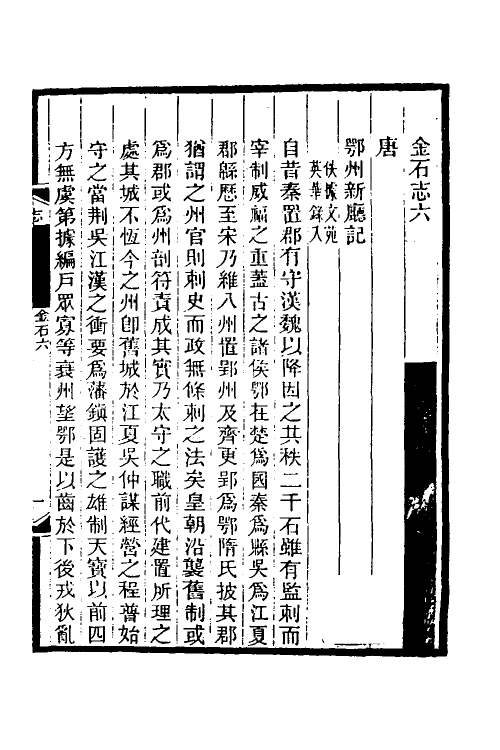 金石志六
唐
鄂州新廳記
佚據文苑
英華錄入
自昔秦置郡有守漢魏以降因之其秩二千石雖有監刺而
宰制威福之重蓋古之諸侯鄂在楚爲國秦爲縣吳爲江夏
郡縣歷至宋乃維八州置郢州及齊更郢爲鄂隋氏披其郡
猶謂之州官則刺史而政無條刺之法矣皇朝沿襲舊制或
爲郡或爲州剖符責成其實乃太守之職前代建置所理之
處其城不恆今之州卽舊城於江夏吳仲謀經營之程普始
守之當荆吳江漢之衝要爲藩鎮固護之雄制天寶以前四
方無虞第據編戶眾寡等衰州望鄂是以齒於下後戎狄亂
志
金石六
一